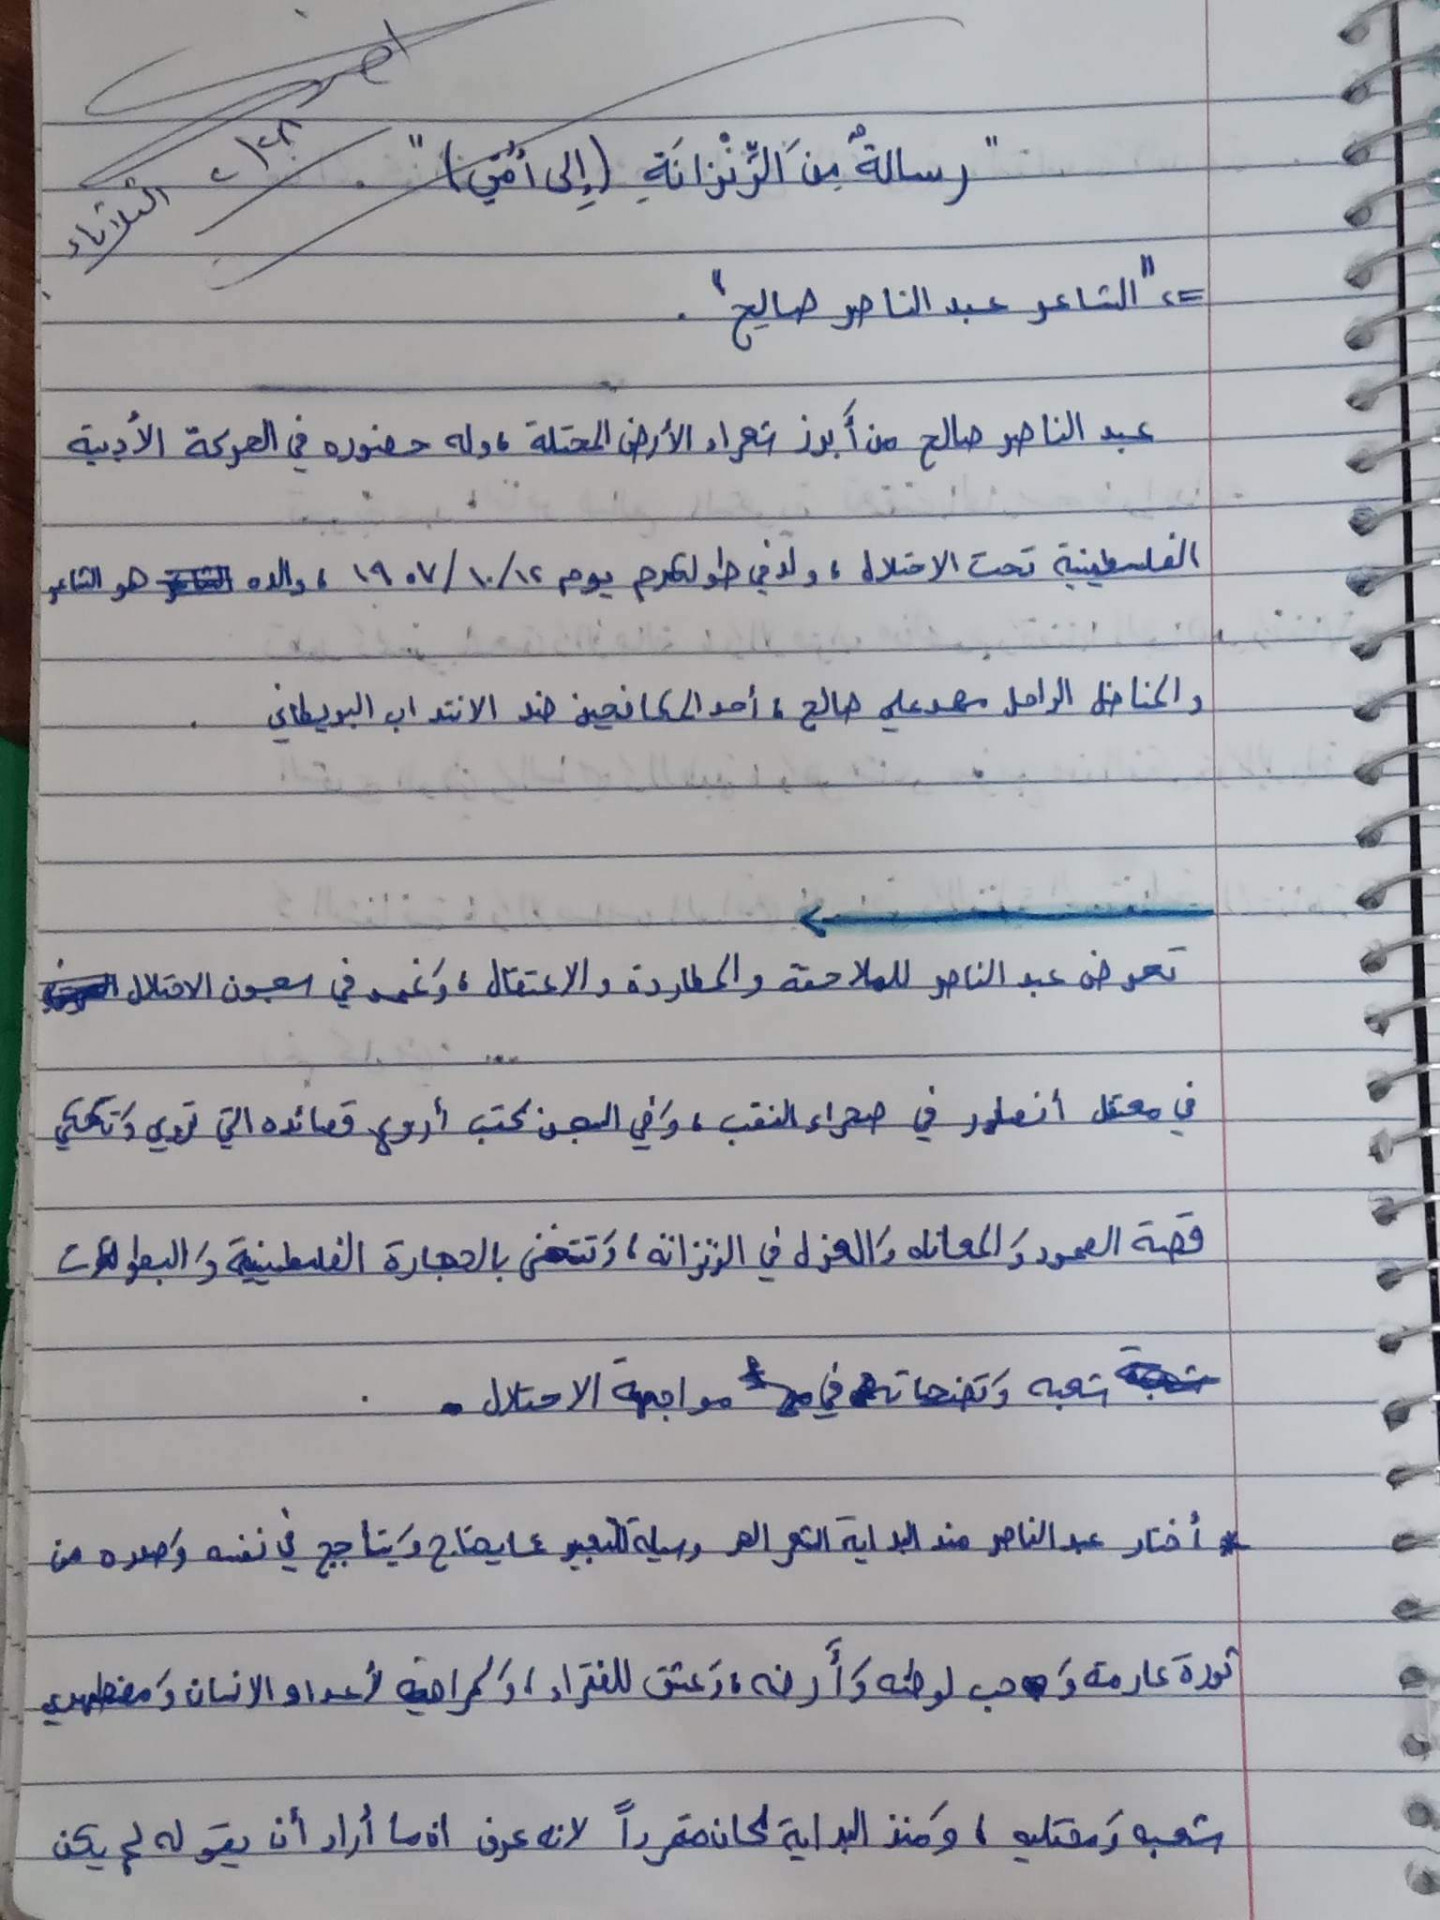 الثلاثاء
"رسالةٌ مِنَ الزِّنْزانَةِ (إِلى أُمّي)".
"الشاعر عبد الناصر صالح".
عبد الناصر صالح من أَبرز شعراء الأرض المحتلة، وله حضوره في الحركة الأدبية
الفلسطينية تحت الاحتلال، ولد في طولكرم يوم ١٩٥٧/١٠/١٢، والده هو الشاعر
والمناضل الراحل محمد علي صالح، أحد المكافحين ضد الانتداب البريطاني.
تعرض عبد الناصر للملاحقة والمطاردة والاعتقال، وَ في سجون الاحتلال
في معتقل أنصار في صحراء النقب، وَفي السجن كتب أروع قصائده التي تروي وَتحكي
قصة الصمود وَالمعاناه وَالعزل في الزنزانه، وَتتغنى بالحجارة الفلسطينية وَالبطولات
شعبه وَتضحياته في مواجهة الاحتلال.
* أختار عبد الناصر منذ البداية الشعر وسيلة للتعبير عما يعتلج وَيتأجج في نفسه وَصدره من
ثورة عارمة وَحب لوطنه وَأَرضه، وَعشق للفقراء، وَكراهية لأعداء الانسان وَمضطهدي
شعبه وَمقتليه، وَمنذ البداية كان متفرداً لانه عرف ان ما أراد أن يقوله لم يكن